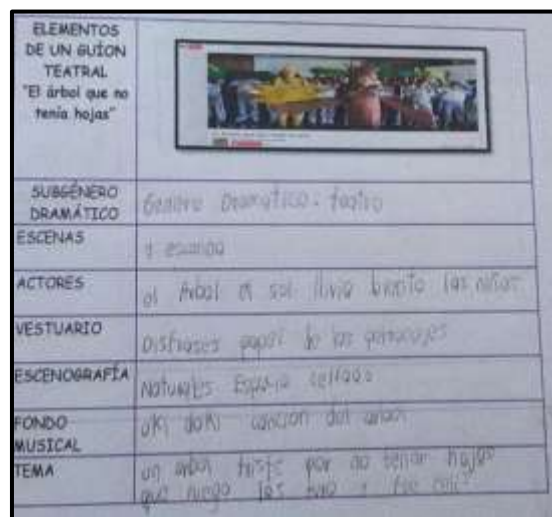 ELEMENTOS
DE UN GUÍON
TEATRAL
"El árbol que no
tenía hojas"
SUBGÉNERO
DRAMÁTICO
Genero Dramatico: teatro
ESCENAS
1 escena
ACTORES
el Arbol el sol lluvia biento las niñas
VESTUARIO
Disfrases papel de los personajes
ESCENOGRAFÍA
Naturales Espacio cerrado
FONDO
MUSICAL
oki doki cancion del arbol
TEMA
un arbol triste por no tener hojas
que luego las tuvo y fue